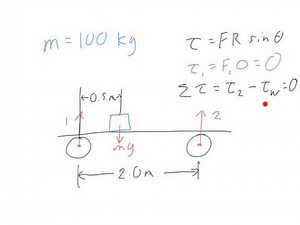 m = 100 kg
τ = FR sinθ
τ₁ = F₁0 = 0
Στ = τ₂ - τw = 0
0.5m
1
2
mg
2.0m